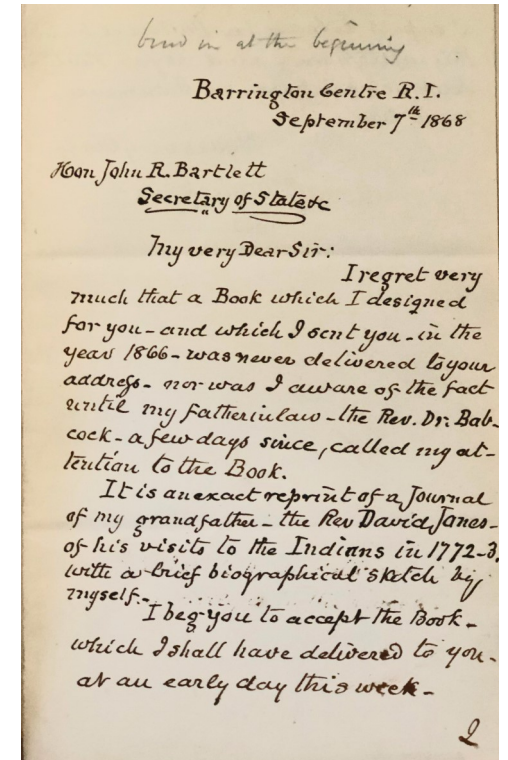 bind in at the beginning
Barrington Centre R.I.
September 7th 1868
Hon John R. Bartlett
Secretary of State &c
My very Dear Sir:
I regret very
much that a Book which I designed
for you - and which I sent you - in the
year 1866 - was never delivered to your
address - nor was I aware of the fact
until my father in law - the Rev. Dr. Bab-
cock - a few days since, called my at-
tention to the Book.
It is an exact reprint of a Journal
of my grandfather - the Rev David Jones -
of his visits to the Indians in 1772-3,
with a brief biographical sketch by
myself. -
I beg you to accept the Book -
which I shall have delivered to you -
at an early day this week -
2